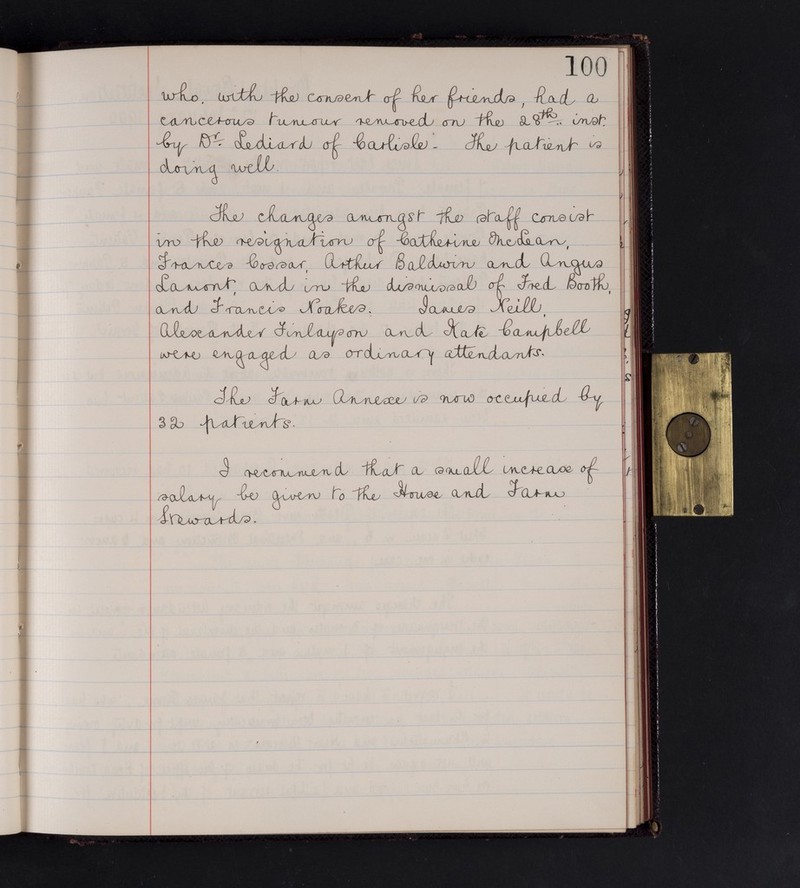 100
who, with the consent of her friends, had a
cancerous tumour removed on the 28th.. inst.
by Dr. Lediard of Carlisle. The patient is
doing well.
The changes amongst the staff consist
in the resignation of Catherine McLean,
Frances Cossar, Arthur Baldwin and Angus
Lamont, and in the dismissal of Fred Booth,
and Francis Noakes. James Neill,
Alexander Finlayson and Kate Campbell
were engaged as ordinary attendants.
The Farm Annexe is now occupied by
32 patients.
I recommend that a small increase of
salary be given to the House and Farm
Stewards.